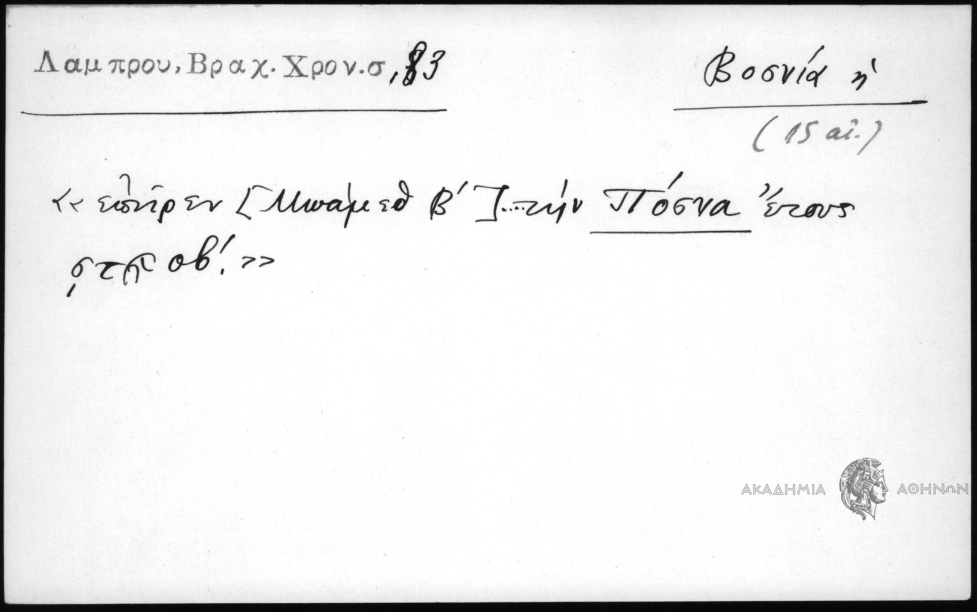 Λαμπρου, Βραχ. Χρον. σ, 83
Βοσνία ἡ
(15 αἰ.)
«ἐπῆρεν [Μωάμεθ Β΄]....τήν Πόσνα ἔτους
͵ϛϡοβ΄.»
ΑΚΑΔΗΜΙΑ ΑΘΗΝΩΝ